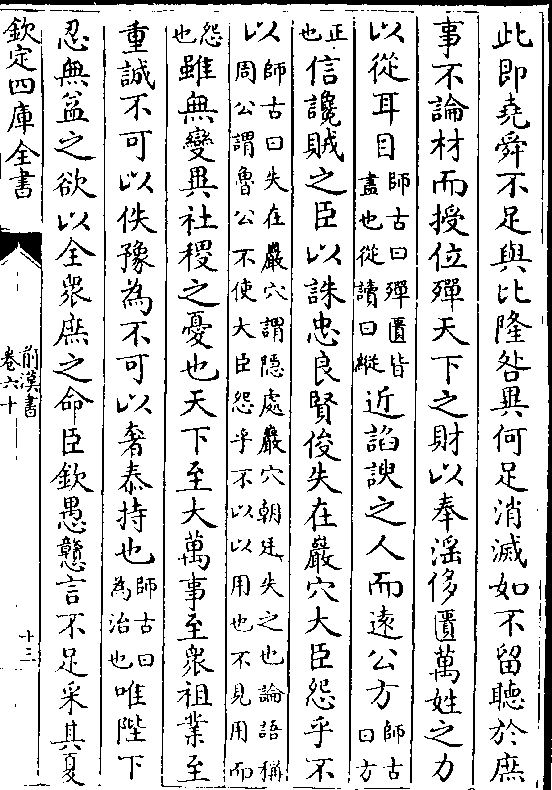 此即堯舜不足與比隆咎異何足消滅如不留聽於庶
事不論材而授位殫天下之財以奉淫侈匱萬姓之力
以從耳目師古曰殫匱皆盡也從讀曰縱近諂諛之人而遠公方師古曰方
正也信讒賊之臣以誅忠良賢俊失在巖穴大臣怨乎不
以師古曰失在巖穴謂隱處巖穴朝廷失之也論語稱周公謂魯公不使大臣怨乎不以以用也不見用而
怨也雖無變異社稷之憂也天下至大萬事至衆祖業至
重誠不可以佚豫為不可以奢泰持也師古曰為治也唯陛下
忍無益之欲以全衆庶之命臣欽愚戇言不足采其夏
欽定四庫全書
前漢書
卷六十
十三